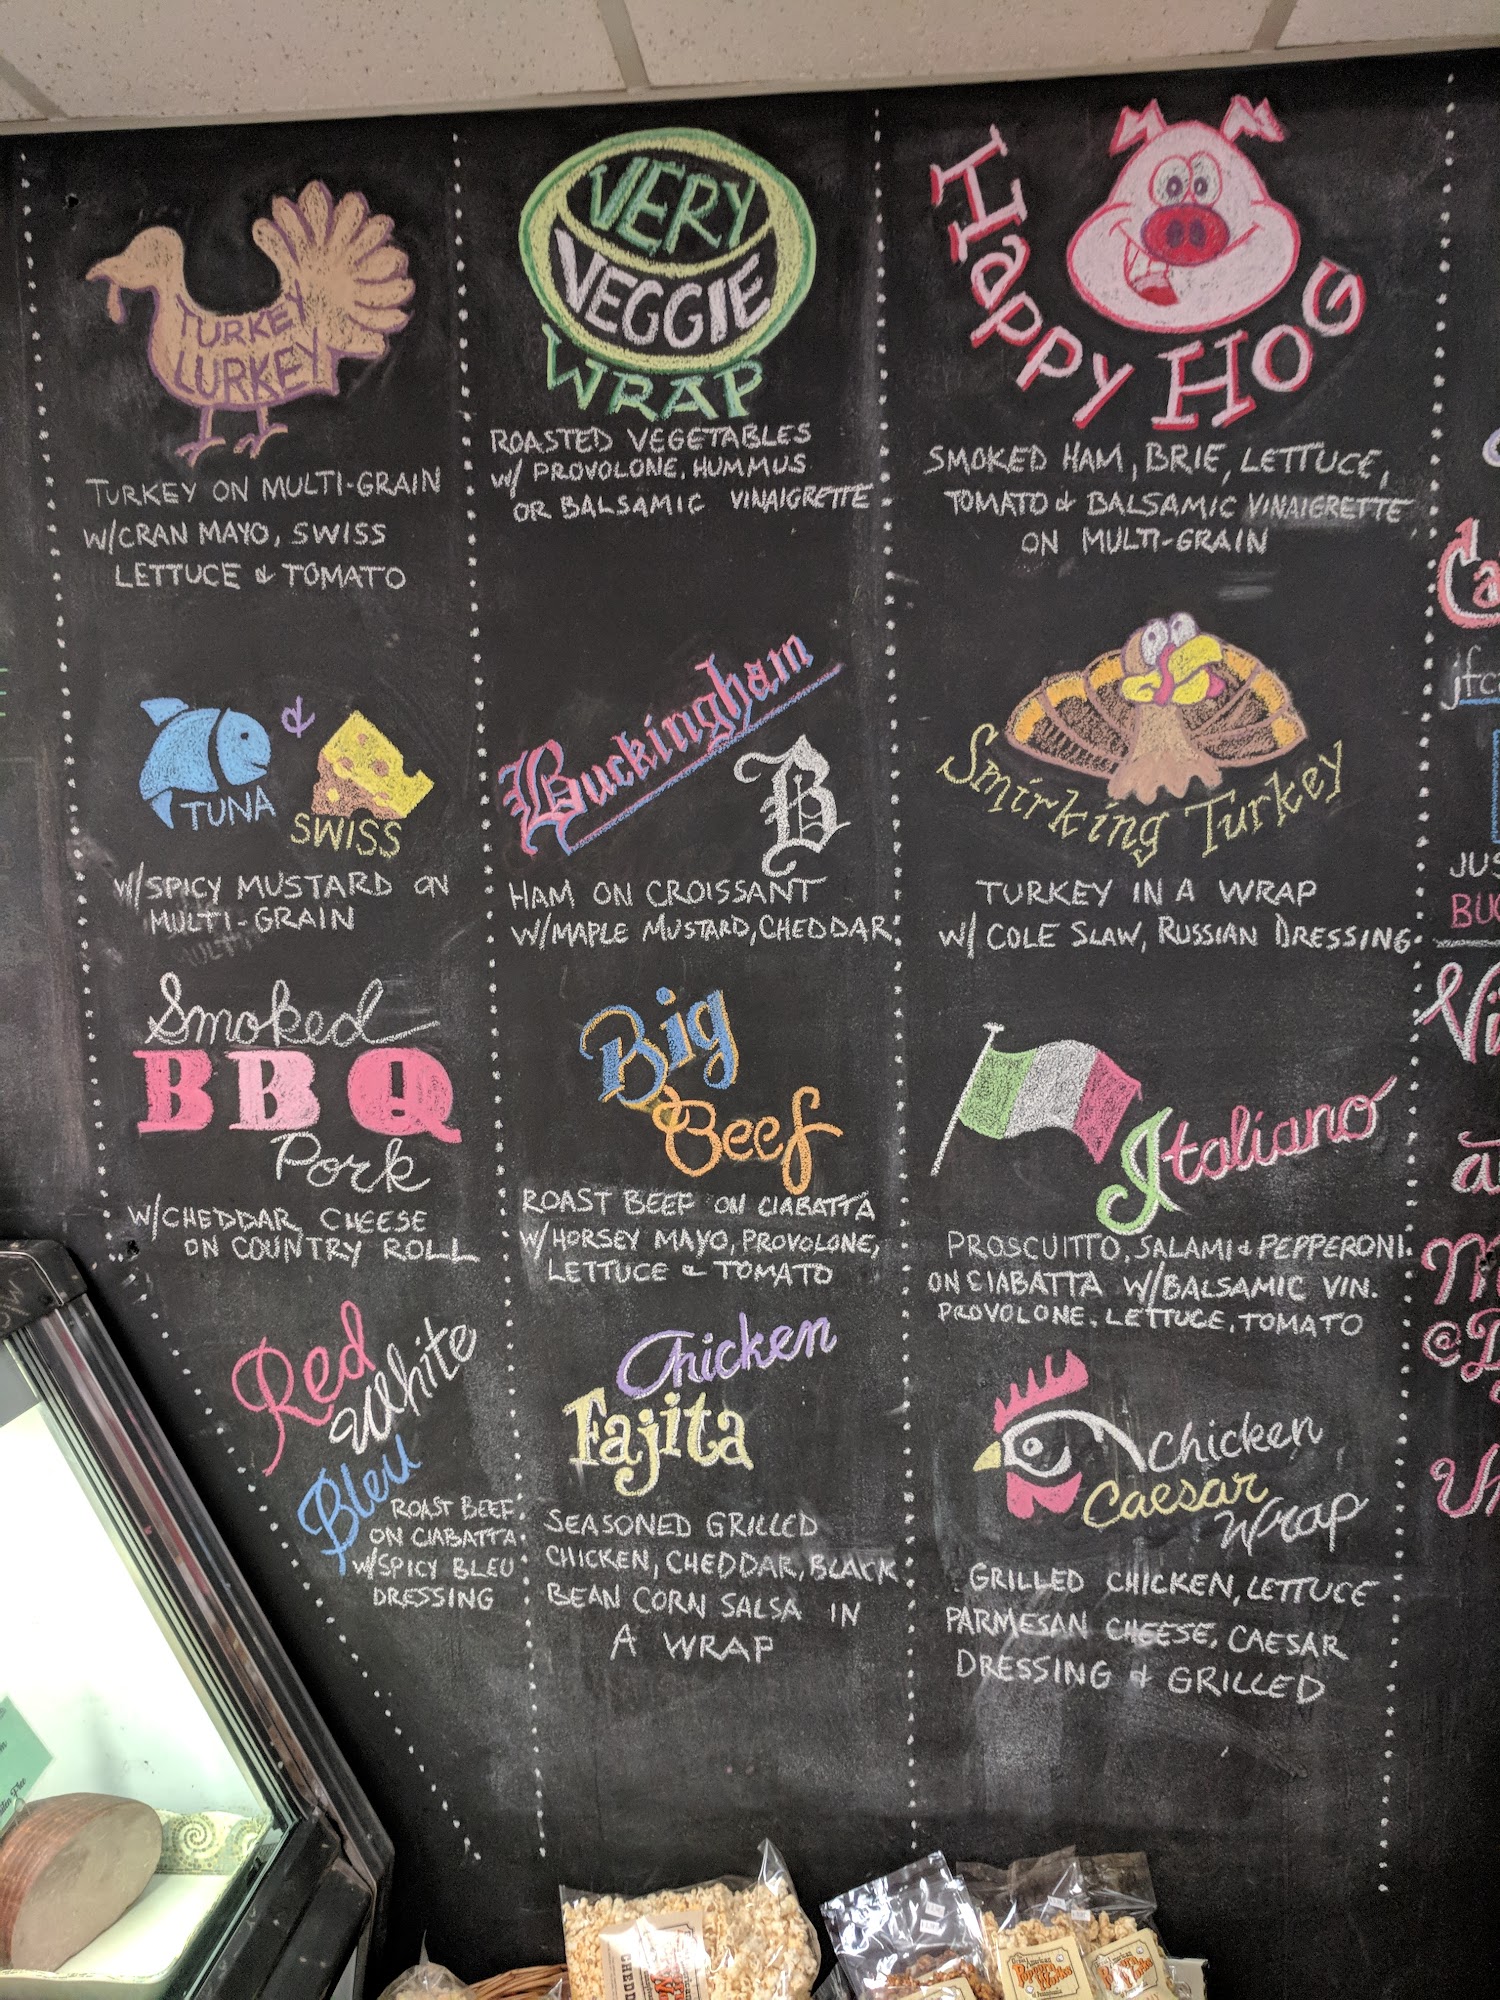 TURKEY
LURKEY
TURKEY ON MULTI-GRAIN
W/CRAN MAYO, SWISS
LETTUCE & TOMATO
TUNA
&
SWISS
W/SPICY MUSTARD ON
MULTI-GRAIN
Smoked
BBQ
Pork
W/CHEDDAR CHEESE
ON COUNTRY ROLL
Red
White
Bleu
ROAST BEEF
ON CIABATTA
W/SPICY BLEU
DRESSING
VERY
VEGGIE
WRAP
ROASTED VEGETABLES
W/ PROVOLONE, HUMMUS
OR BALSAMIC VINAIGRETTE
Buckingham
B
HAM ON CROISSANT
W/MAPLE MUSTARD, CHEDDAR
Big
Beef
ROAST BEEF ON CIABATTA
W/HORSEY MAYO, PROVOLONE,
LETTUCE & TOMATO
Chicken
Fajita
SEASONED GRILLED
CHICKEN, CHEDDAR, BLACK
BEAN CORN SALSA IN
A WRAP
Happy Hog
SMOKED HAM, BRIE, LETTUCE,
TOMATO & BALSAMIC VINAIGRETTE
ON MULTI-GRAIN
Smirking Turkey
TURKEY IN A WRAP
W/ COLE SLAW, RUSSIAN DRESSING
Italiano
PROSCUITTO, SALAMI & PEPPERONI
ON CIABATTA W/BALSAMIC VIN.
PROVOLONE, LETTUCE, TOMATO
Chicken
Caesar
Wrap
GRILLED CHICKEN, LETTUCE
PARMESAN CHEESE, CAESAR
DRESSING & GRILLED
Ca
jfc
JUS
BUC
Vi
Popcorn
Works